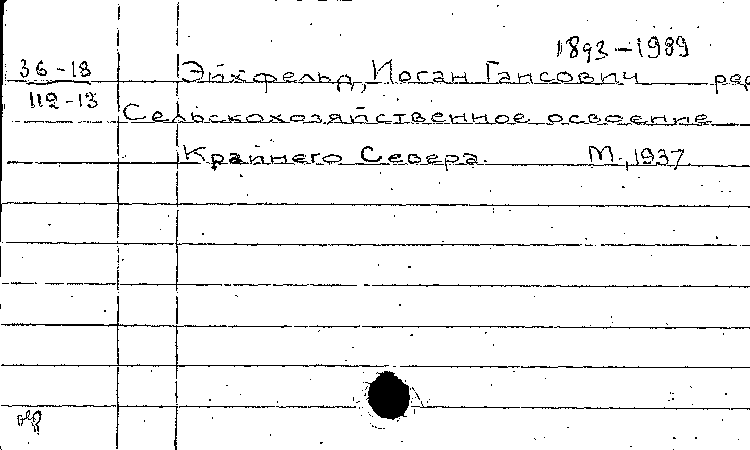 1893-1989
36-18 Эйхфельд, Иоган Гансович ред
112-13 Сельскохозяйственное освоение
Крайнего Севера. М., 1937